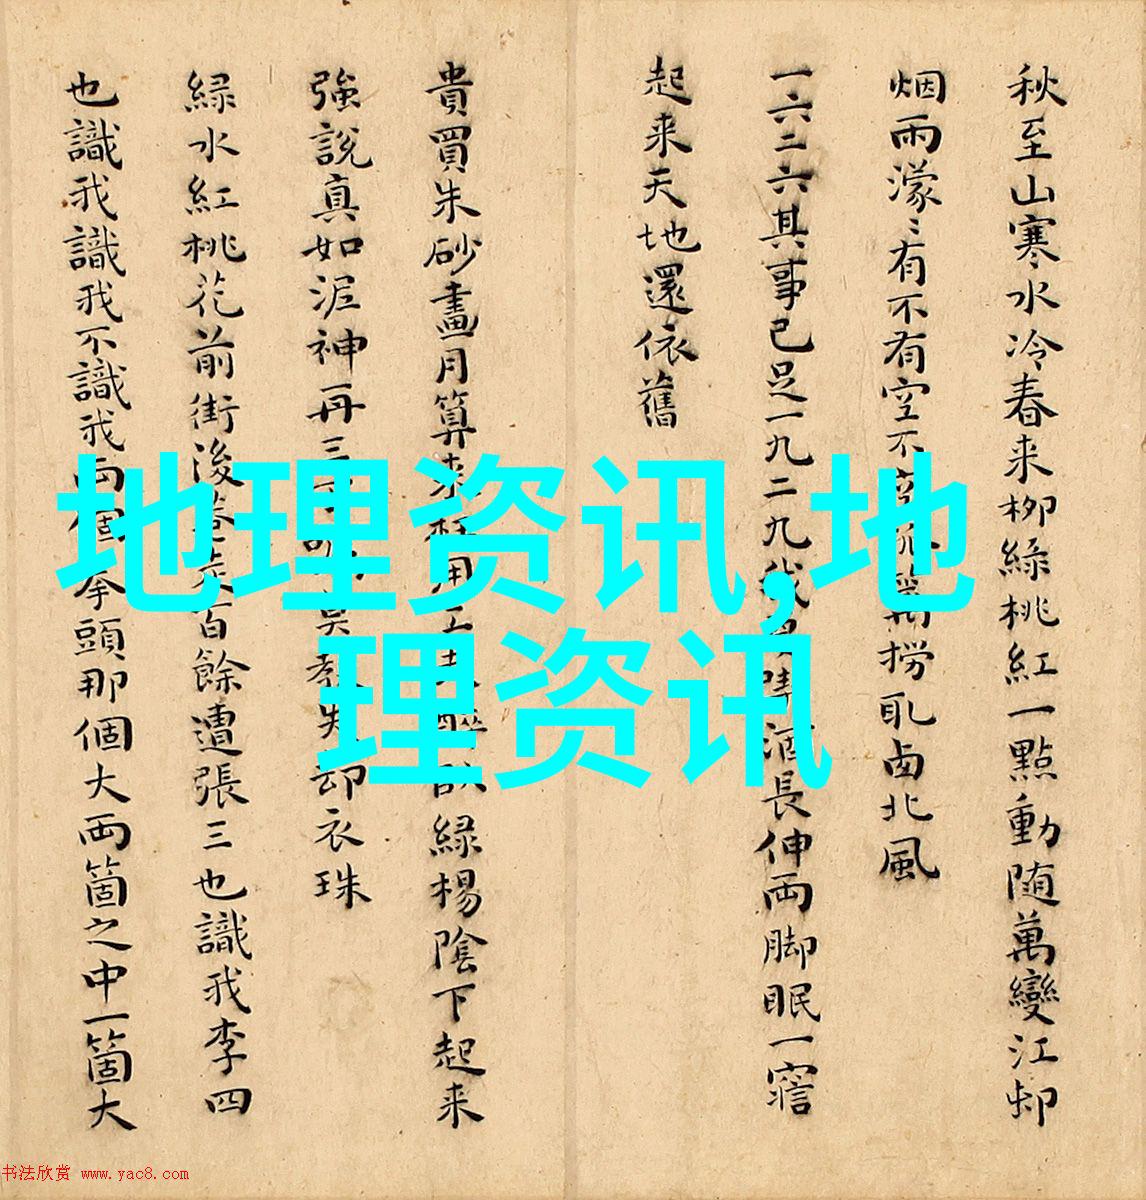 秋至山寒水冷春来柳綠桃紅一點動随萬變江邨
烟雨濛〻有不有空不空撈耴卤北風
一六二六其事已足一九二九我酒長伸両脚眠一寤
起来天地還依舊
貴買朱砂畫月算来枉用工夫醉卧綠楊陰下起来
強説真如泥神再三莫教失却衣珠
綠水紅桃花前街後巷走百餘遭張三也識我李四
也識我識我不識我両個拳頭那個大両箇之中一箇大
地理资讯,地
理资讯
书法欣赏 www.yac8.com